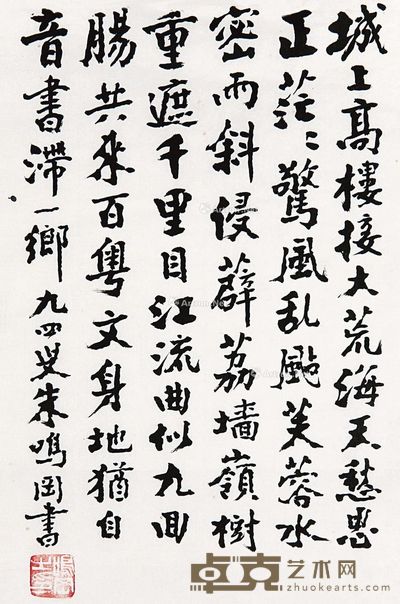 城上高樓接大荒海天愁思
正茫〻驚風乱颭芙蓉水
密雨斜侵薜荔墙嶺樹
重遮千里目江流曲似九回
腸共来百粤文身地猶自
音書滯一鄉 九四叟朱鳴岡書
艺术网
zhuokearts.com